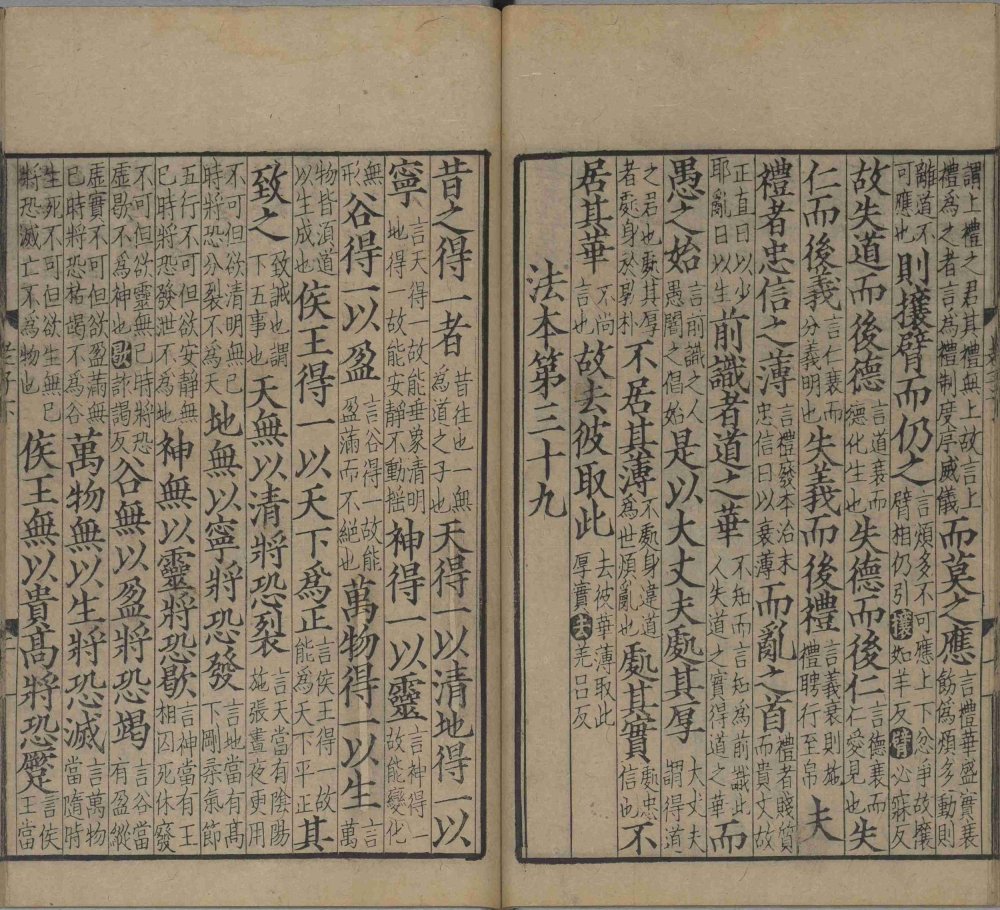 謂上禮之君其禮無上故言上禮為之者言為禮制度序威儀而莫之應言禮華盛實衰飾偽煩多動則
離道不可應也則攘臂而仍之言煩多不可應上下忿爭故攘臂相仍引攘如羊反臂必寐反
故失道而後德言道衰而德化生也失德而後仁言德衰而仁愛見也失
仁而後義言仁衰而分義明也失義而後禮言義衰則施禮聘行至帛夫
禮者忠信之薄言禮發本治末忠信日以衰薄而亂之首禮者賤質而貴文故
正直日以少耶亂日以生前識者道之華不知而言知為前識此人失道之實得道之華而
愚之始言前識之人愚闇之倡始是以大丈夫處其厚大丈夫謂得道
之君也處其厚者處身於敦朴不居其薄不處身違道為世煩亂也處其實處忠信也不
居其華不尚言也故去彼取此去彼華薄取此厚實去羌呂反
法本第三十九
昔之得一者昔往也一無為道之子也天得一以清地得一以
寧言天得一故能垂象清明地得一故能安靜不動搖神得一以靈言神得一故能變化
無形谷得一以盈言谷得一故能盈滿而不絕也萬物得一以生言萬
物皆湏道以生成也侯王得一以天下為正言侯王得一故能為天下平正其
致之致誡也謂下五事也天無以清將恐裂言天當有陰陽施張晝夜更用
不可但欲清明無已時將恐分裂不為天地無以寧將恐發言地當有高下剛柔氣節
五行不可但欲安靜無已時將恐發泄不為地神無以靈將恐歇言神當有王相囚死休廢
不可但欲靈無已時將恐虛歇不為神也歇許謁反谷無以盈將恐竭言谷當有盈縱
虛實不可但欲盈滿無已時將恐枯竭不為谷萬物無以生將恐滅言萬物當隨時
生死不可但欲生無已將恐滅亡不為物也侯王無以貴高將恐蹷言侯王當